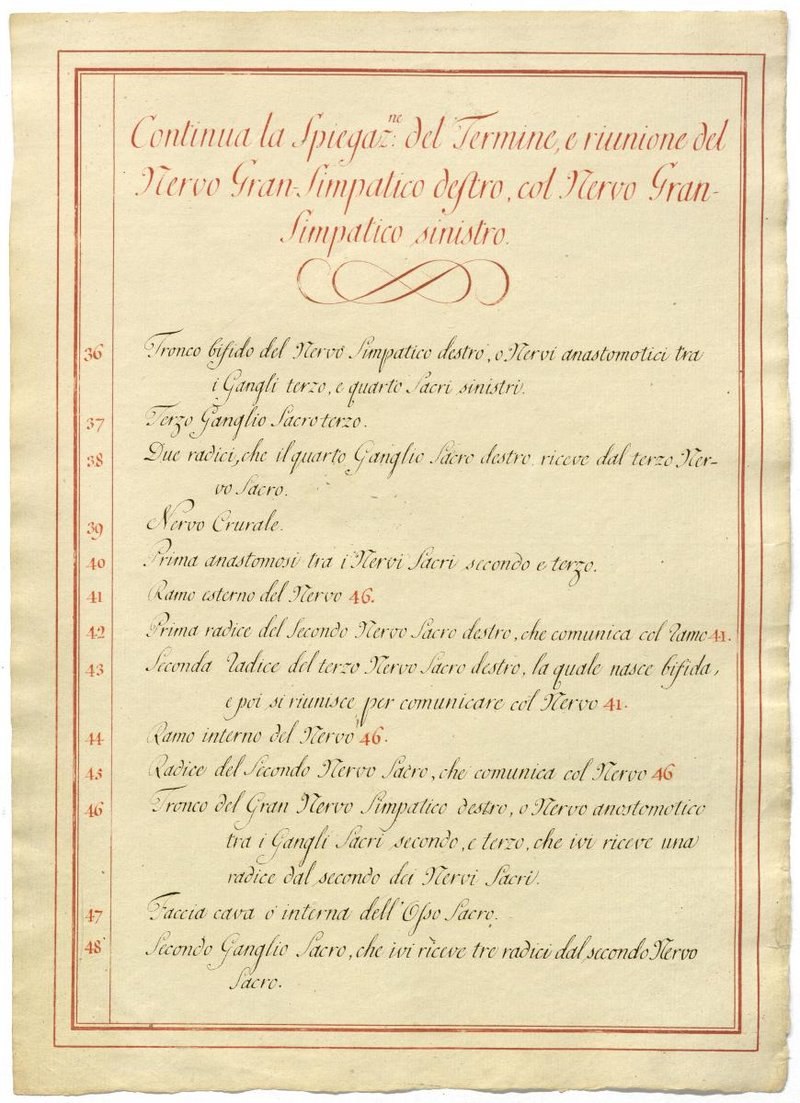 Continua la Spiegaz.ne del Termine, e riunione del
Nervo Gran-Simpatico destro, col Nervo Gran-
Simpatico sinistro.
36 Tronco bifido del Nervo Simpatico destro, o Nervi anastomotici tra
i Gangli terzo, e quarto Sacri sinistri.
37 Terzo Ganglio Sacro terzo.
38 Due radici, che il quarto Ganglio Sacro destro riceve dal terzo Ner-
vo Sacro.
39 Nervo Crurale.
40 Prima anastomosi tra i Nervi Sacri secondo e terzo.
41 Ramo esterno del Nervo 46.
42 Prima radice del Secondo Nervo Sacro destro, che comunica col Ramo 41.
43 Seconda Radice del terzo Nervo Sacro destro, la quale nasce bifida,
e poi si riunisce per comunicare col Nervo 41.
44 Ramo interno del Nervo 46.
45 Radice del Secondo Nervo Sacro, che comunica col Nervo 46
46 Tronco del Gran Nervo Simpatico destro, o Nervo anostomotico
tra i Gangli Sacri secondo, e terzo, che ivi riceve una
radice dal secondo dei Nervi Sacri.
47 Faccia cava o interna dell'Osso Sacro.
48 Secondo Ganglio Sacro, che ivi riceve tre radici dal secondo Nervo
Sacro.